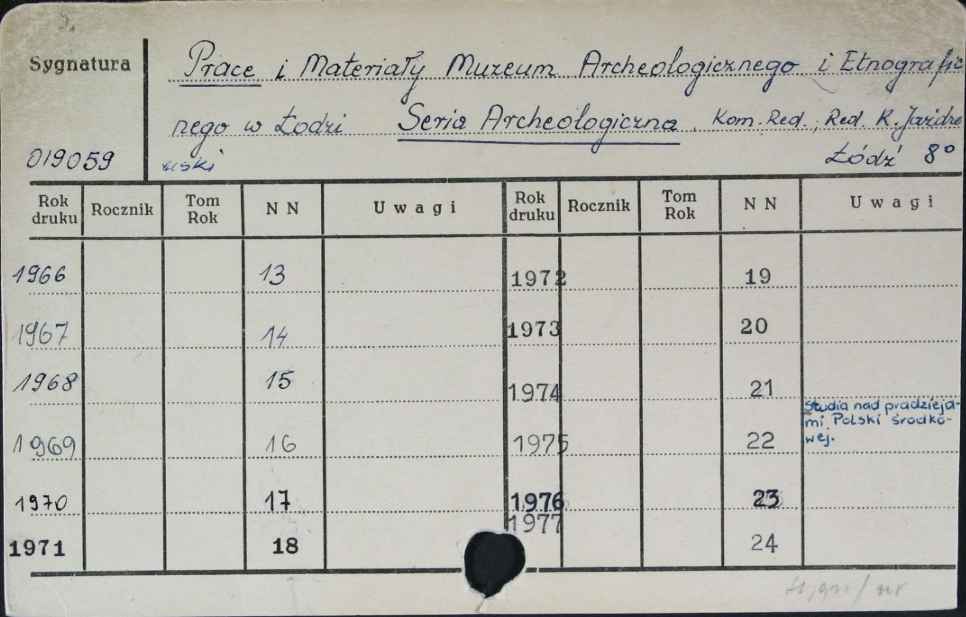 Sygnatura
Prace i Materiały Muzeum Archeologicznego i Etnografic
nego w Łodzi Seria Archeologiczna. Kom. Red., Red. K. Jażdże
019059 wski Łódź 8°
Rok druku Rocznik Tom Rok NN Uwagi Rok druku Rocznik Tom Rok NN Uwagi
1966 13 1972 19
1967 14 1973 20
1968 15 1974 21
Studia nad pradzieja-
mi Polski środko-
wej.
1969 16 1975 22
1970 17 1976 23
1977
1971 18 24